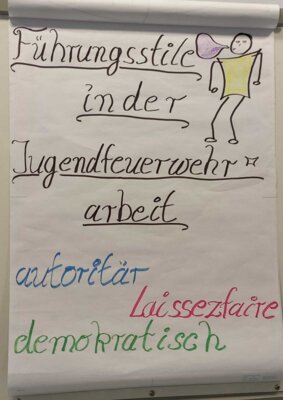 Führungsstile
in der
Jugendfeuerwehr-
arbeit
autoritär
Laissezfaire
demokratisch